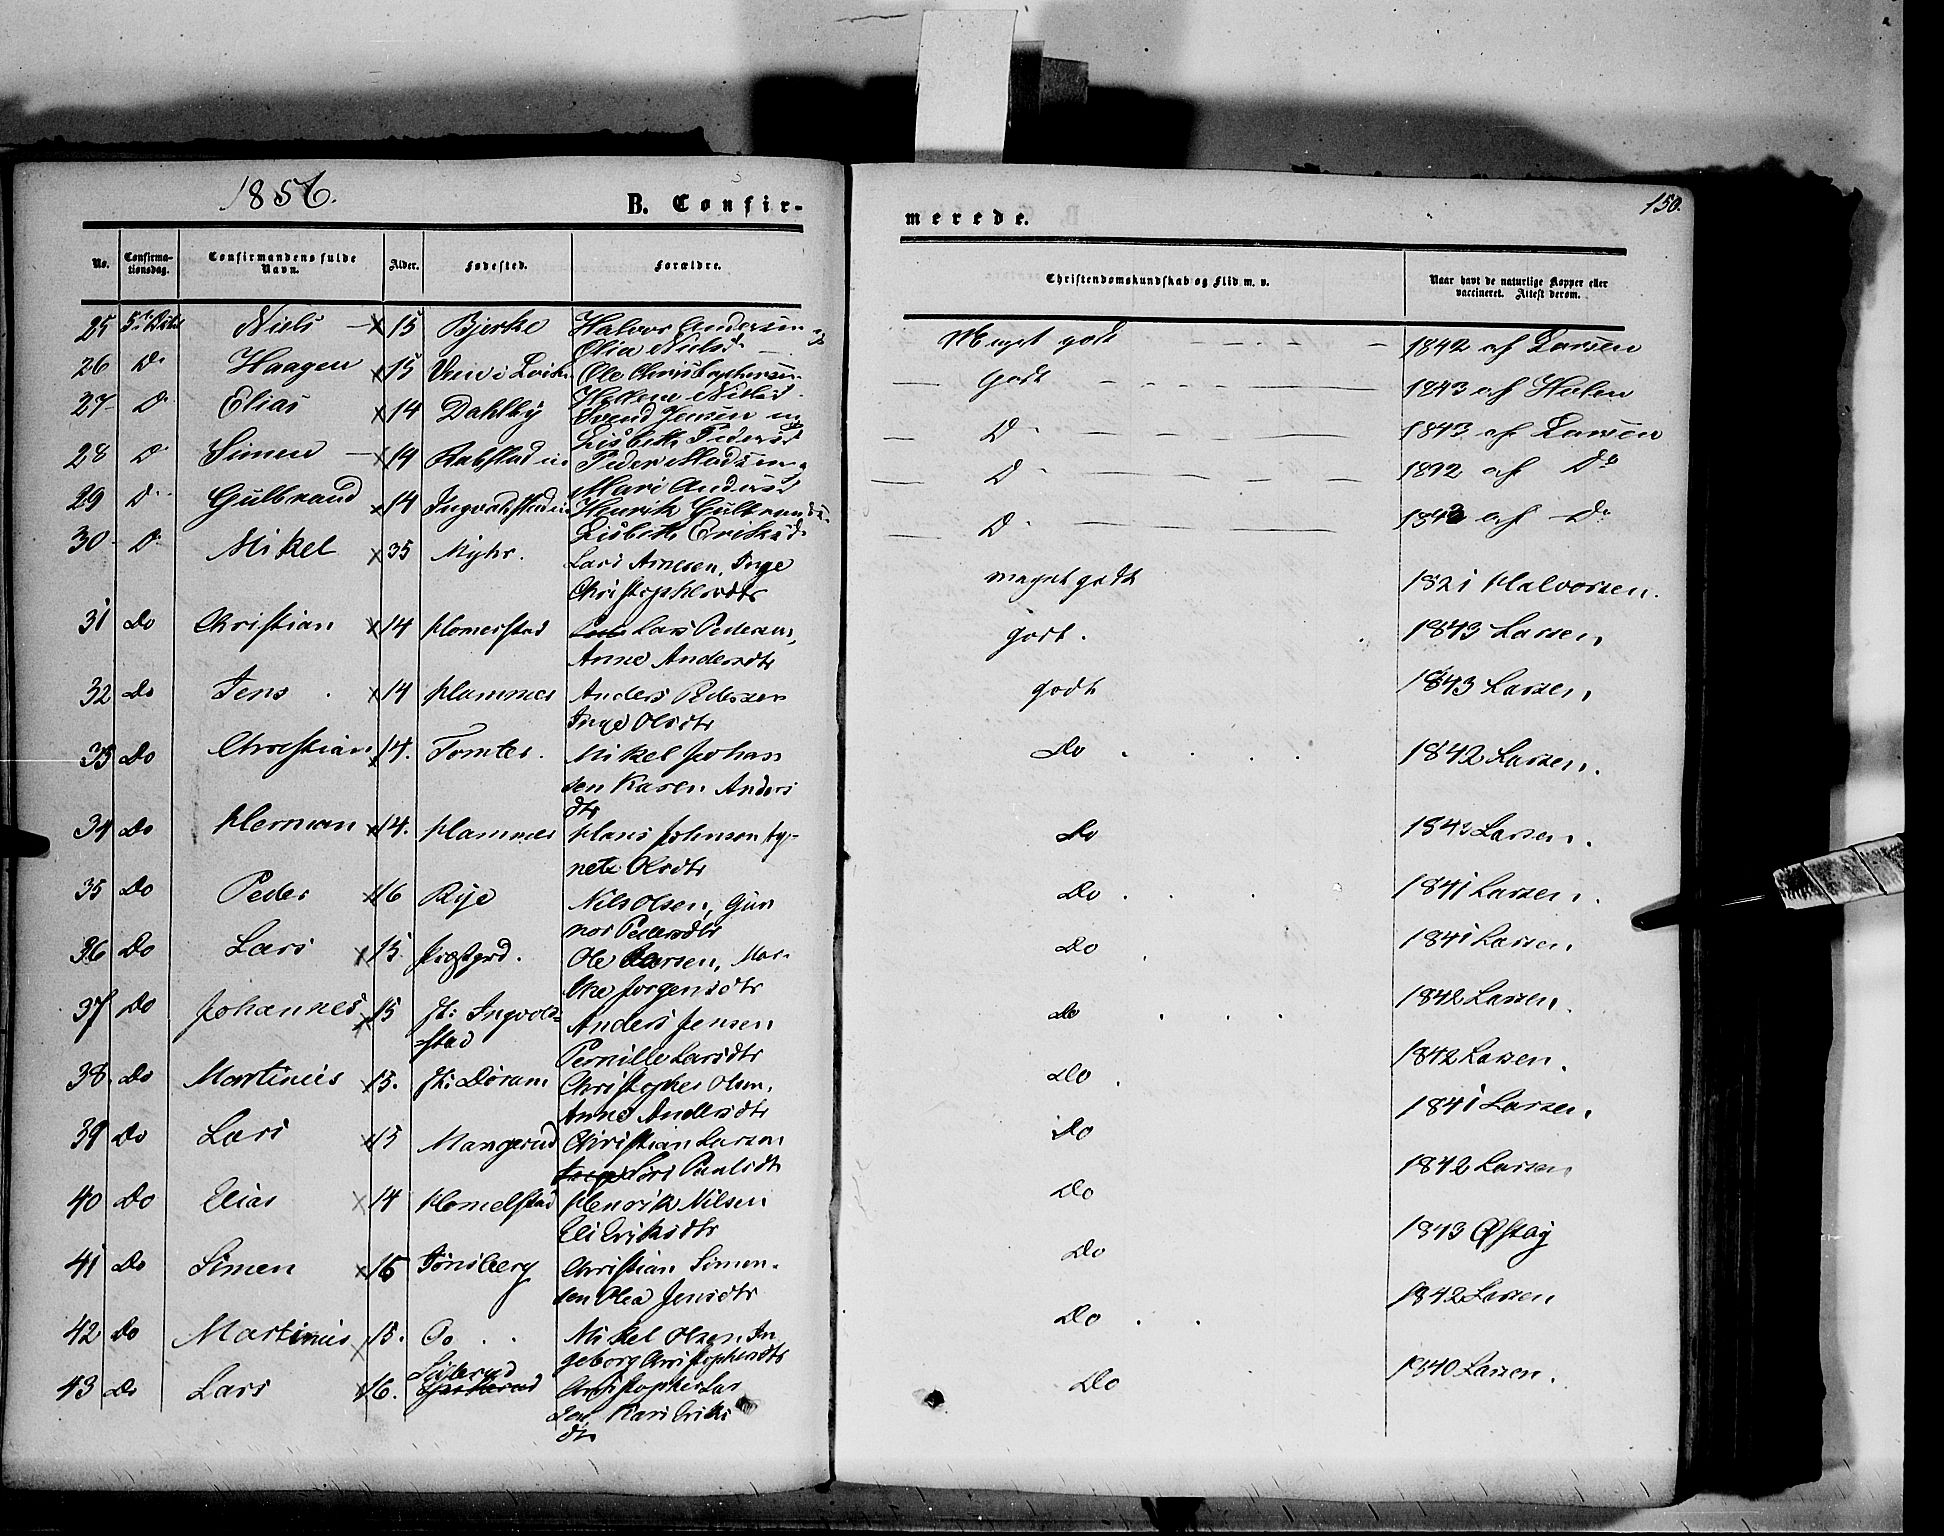 1856.
B. Confir-
merede.
150.
No.
Confirma-
tionsdag.
Confirmandens fulde
Navn.
Alder.
Fødested.
Forældre.
Christendomskundskab og Flid m. v.
Naar havt de naturlige Kopper eller
vaccineret. Attest derom.
25 Niels 15 Bjerke Halvor Andersen
Olia Nielsd. Meget godt 1842 af Larsen
26 Do Haagen x 15 Ole Christophersen
Hellene Nielsd. Godt 1843 af Holen
27 Do Elias x 14 Dahlby Svend Jensen
Lisbeth Pedersd. Do 1843 af Larsen
28 Do Simen x 14 Peder Madsen
Mari Andersd. Do 1842 af Do
29 Do Gulbrand x 14 Henrik Gulbrands.
Lisbeth Eriksd. Do 1843 af Do
30 Do Mikel x 35 Myhr. Lars Arnesen, Inge
Christophersdtr meget godt 1821 Halvorsen.
31 Do Christian x 14 Homerstad Lars Pedersen,
Anne Andersdtr godt. 1843 Larsen,
32 Do Jens x 14 Hammer Anders Pedersen
Inge Olsdtr godt 1843 Larsen,
33 Do Christian x 14. Tomter. Mikel Johan
sen Karen Anders
dtr Do 1842 Larsen.
34 Do Herman x 14. Hammer Hans Johnson Ag-
nete Olsdtr Do 1843 Larsen.
35 Do Peder x 16 Rije Nils Olsen, Gun
nor Pedersdtr Do 1841 Larsen.
36 Do Lars x 15 Præstgrd. Ole Larsen, Mar-
the Jørgensdtr Do 1841 Larsen
37 Do Johannes x 15 Ingvold-
stad Anders Jensen
Pernille Larsdtr Do 1842 Larsen.
38 Do Martinus x 15. Christopher Olsen,
Anne Andersdtr Do 1842 Larsen.
39 Do Lars x 15 Mangerud Christian Larsen
Siri Paulsdtr Do 1841 Larsen.
40 Do Elias x 14 Homelstad Henrik Nilsen
Eli Eriksdtr Do 1842 Larsen
41 Do Simen x 15 Tønsberg Christian Simen-
sen Olea Jensdtr Do 1843 Østby
42 Do Martinus x 15. Do Mikel Olsen In
geborg Christophersdtr Do 1842 Larsen
43 Do Lars x 16. Christopher Lar
sen Kari Eriks
dtr Do 1840 Larsen.